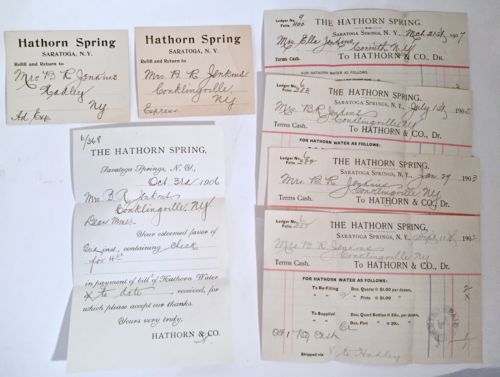 Hathorn Spring
SARATOGA, N. Y.
Refill and Return to
Mrs B R Jenkins
Hadley
NY
Hathorn Spring
SARATOGA, N. Y.
Refill and Return to
Mrs. B. R. Jenkins
Conklingville,
NY
Express
6/368
THE HATHORN SPRING,
Saratoga Springs, N. Y.,
Oct. 3rd 1906
Mrs B. R. Jenkins
Conklingville, NY
Dear Madam
Your esteemed favor of
inst., containing Check
for
in payment of bill of Hathorn Water
to date, received, for
which please accept our thanks.
Yours very truly,
HATHORN & CO.
Ledger No.
Folio
THE HATHORN SPRING,
SARATOGA SPRINGS, N. Y., Mch 21st 1907
Mrs Ella Jenkins,
Corinth, NY
Terms Cash. To HATHORN & CO., Dr.
FOR HATHORN WATER AS FOLLOWS:
Ledger No.
Folio
THE HATHORN SPRING,
SARATOGA SPRINGS, N. Y., July 1st, 190
Mrs B R Jenkins
Conklingville, NY
Terms Cash. To HATHORN & CO., Dr.
FOR HATHORN WATER AS FOLLOWS:
Ledger No. 6
Folio
THE HATHORN SPRING,
SARATOGA SPRINGS, N. Y., Jan 29 1903
Mrs. B R. Jenkins
Conklingville, NY
Terms Cash. To HATHORN & CO., Dr.
Ledger No. 6
Folio
THE HATHORN SPRING,
SARATOGA SPRINGS, N. Y., Sept 11 190
Mrs B R Jenkins
Conklingville NY
Terms Cash. To HATHORN & CO., Dr.
FOR HATHORN WATER AS FOLLOWS:
To Re-Filling Doz. Quarts @ $1.00 per dozen,
" " 2 " Pints @ $1. " "
To Supplied Doz. Quart Bottles @ 50c. per doz.
" " Doz. Pint " @ 50c. " "
Cr
Cash
PAID
Shipped via to Hadley